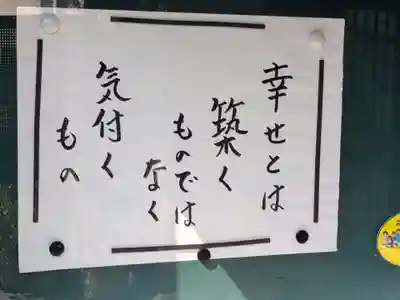 幸せとは
築く
ものでは
なく
気付く
もの